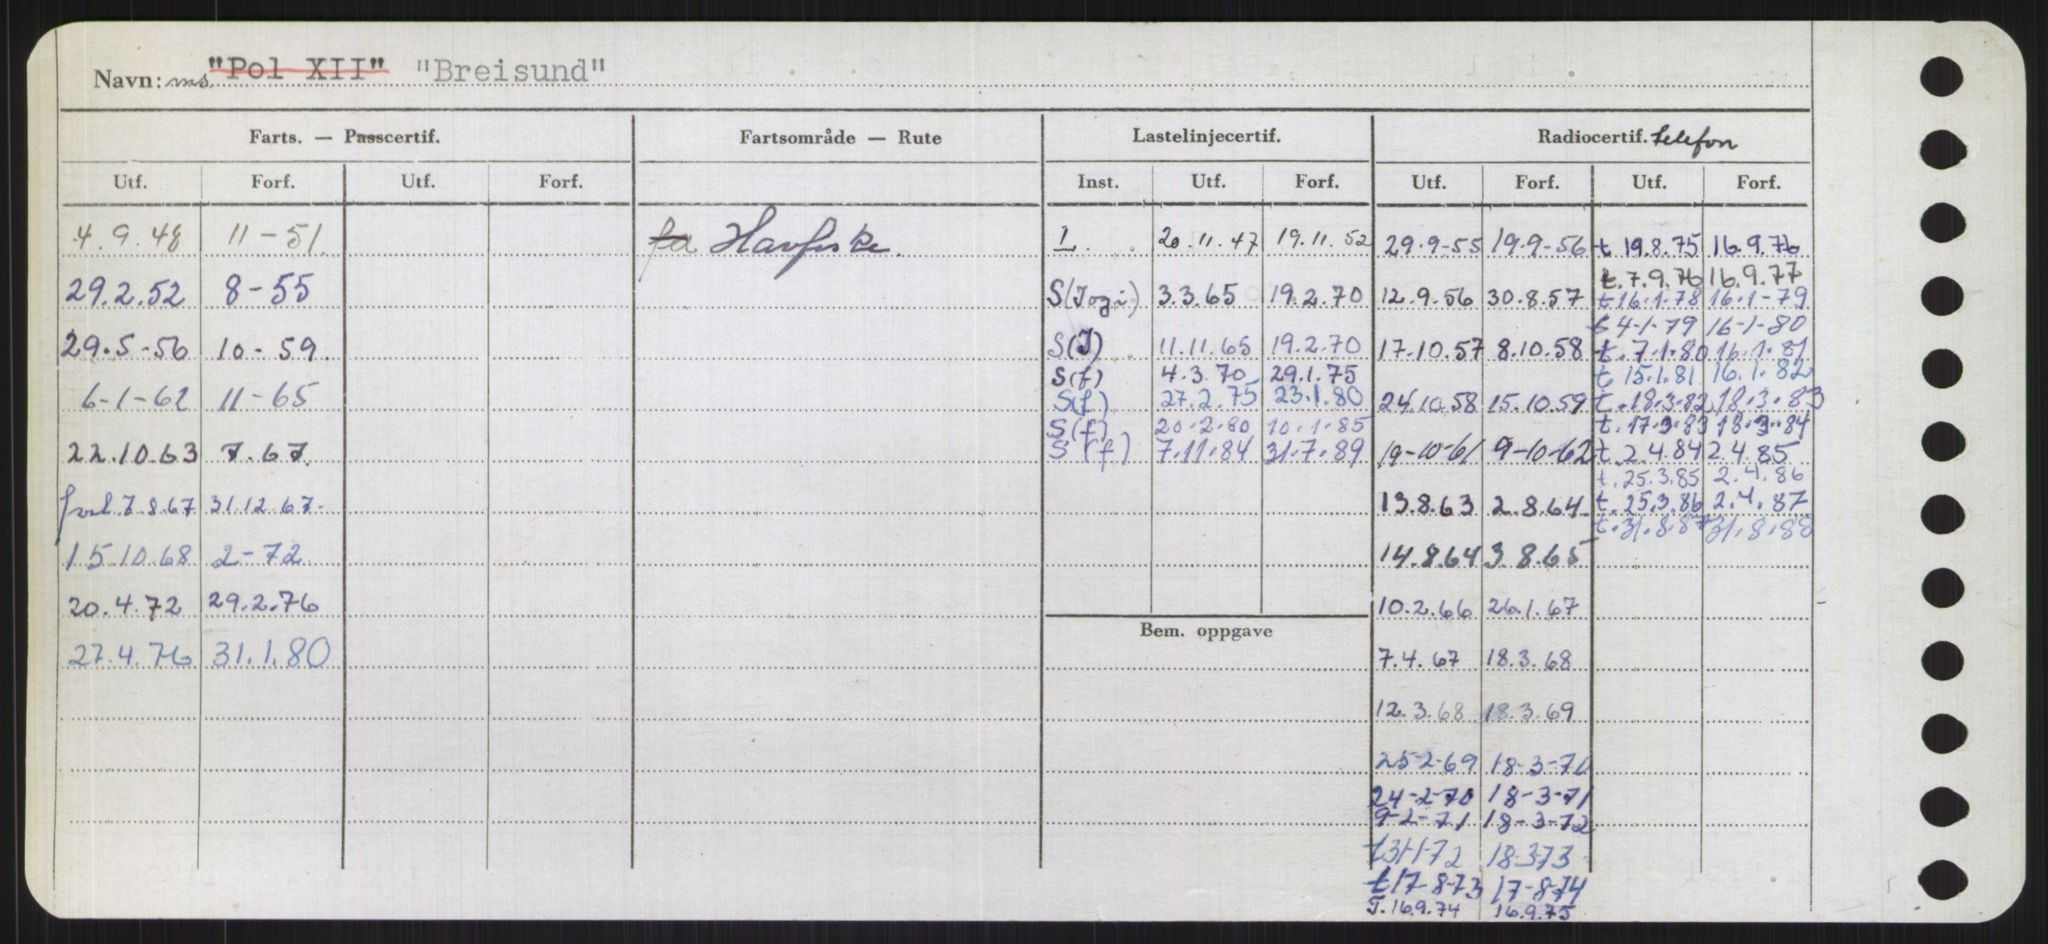 Navn: ms "Pol XII" "Breisund"
Farts. — Passcertif. Fartsområde — Rute Lastelinjecertif. Radiocertif. telefon
Utf. Forf. Utf. Forf. Inst. Utf. Forf. Utf. Forf. Utf. Forf.
4.9.48 11-51 Havfiske. L 20.11.47 19.11.52 29.9-55 19.9-56 t 19.8.75 16.9.76
t.7.9.76 16.9.77
29.2.52 8-55 S(J og i) 3.3.65 19.2.70 12.9.56 30.8.57 t 16.1.78 16-1-79
t 4-1-79 16-1-80
29.5-56 10-59. S(J) 11.11.65 19.2.70 17.10.57 8.10.58 t.7.1.80 16.1.81
S(f) 4.3.70 29.1.75 t 15.1.81 16.1.82
6-1-62 11-65 S(f) 27.2.75 23.1.80 24.10.58 15.10.59 t.18.3.82 18.3.83
S(f) 20.2.80 10.1.85 t.17.3.83 18.3.84
22.10.63 7.67. S(f) 7.11.84 31.7.89 19-10-61 9-10-62 t.2.4.84 2.4.85
t.25.3.85 2.4.86
7.8.67 31.12.67- 13.8.63 2.8.64 t.25.3.86 2.4.87
t.31.8.87 31.8.88
15.10.68 2-72 14.8.64 3.8.65
20.4.72 29.2.76 10.2.66 26.1.67
Bem. oppgave
27.4.76 31.1.80 7.4.67 18.3.68
12.3.68 18.3.69
25-2-69 18-3-70
24-2-70 18-3-71
9-2-71 18-3-72
t31-1-72 18-3-73
t17-8-73 17-8-74
T.16.9.74 16.9.75